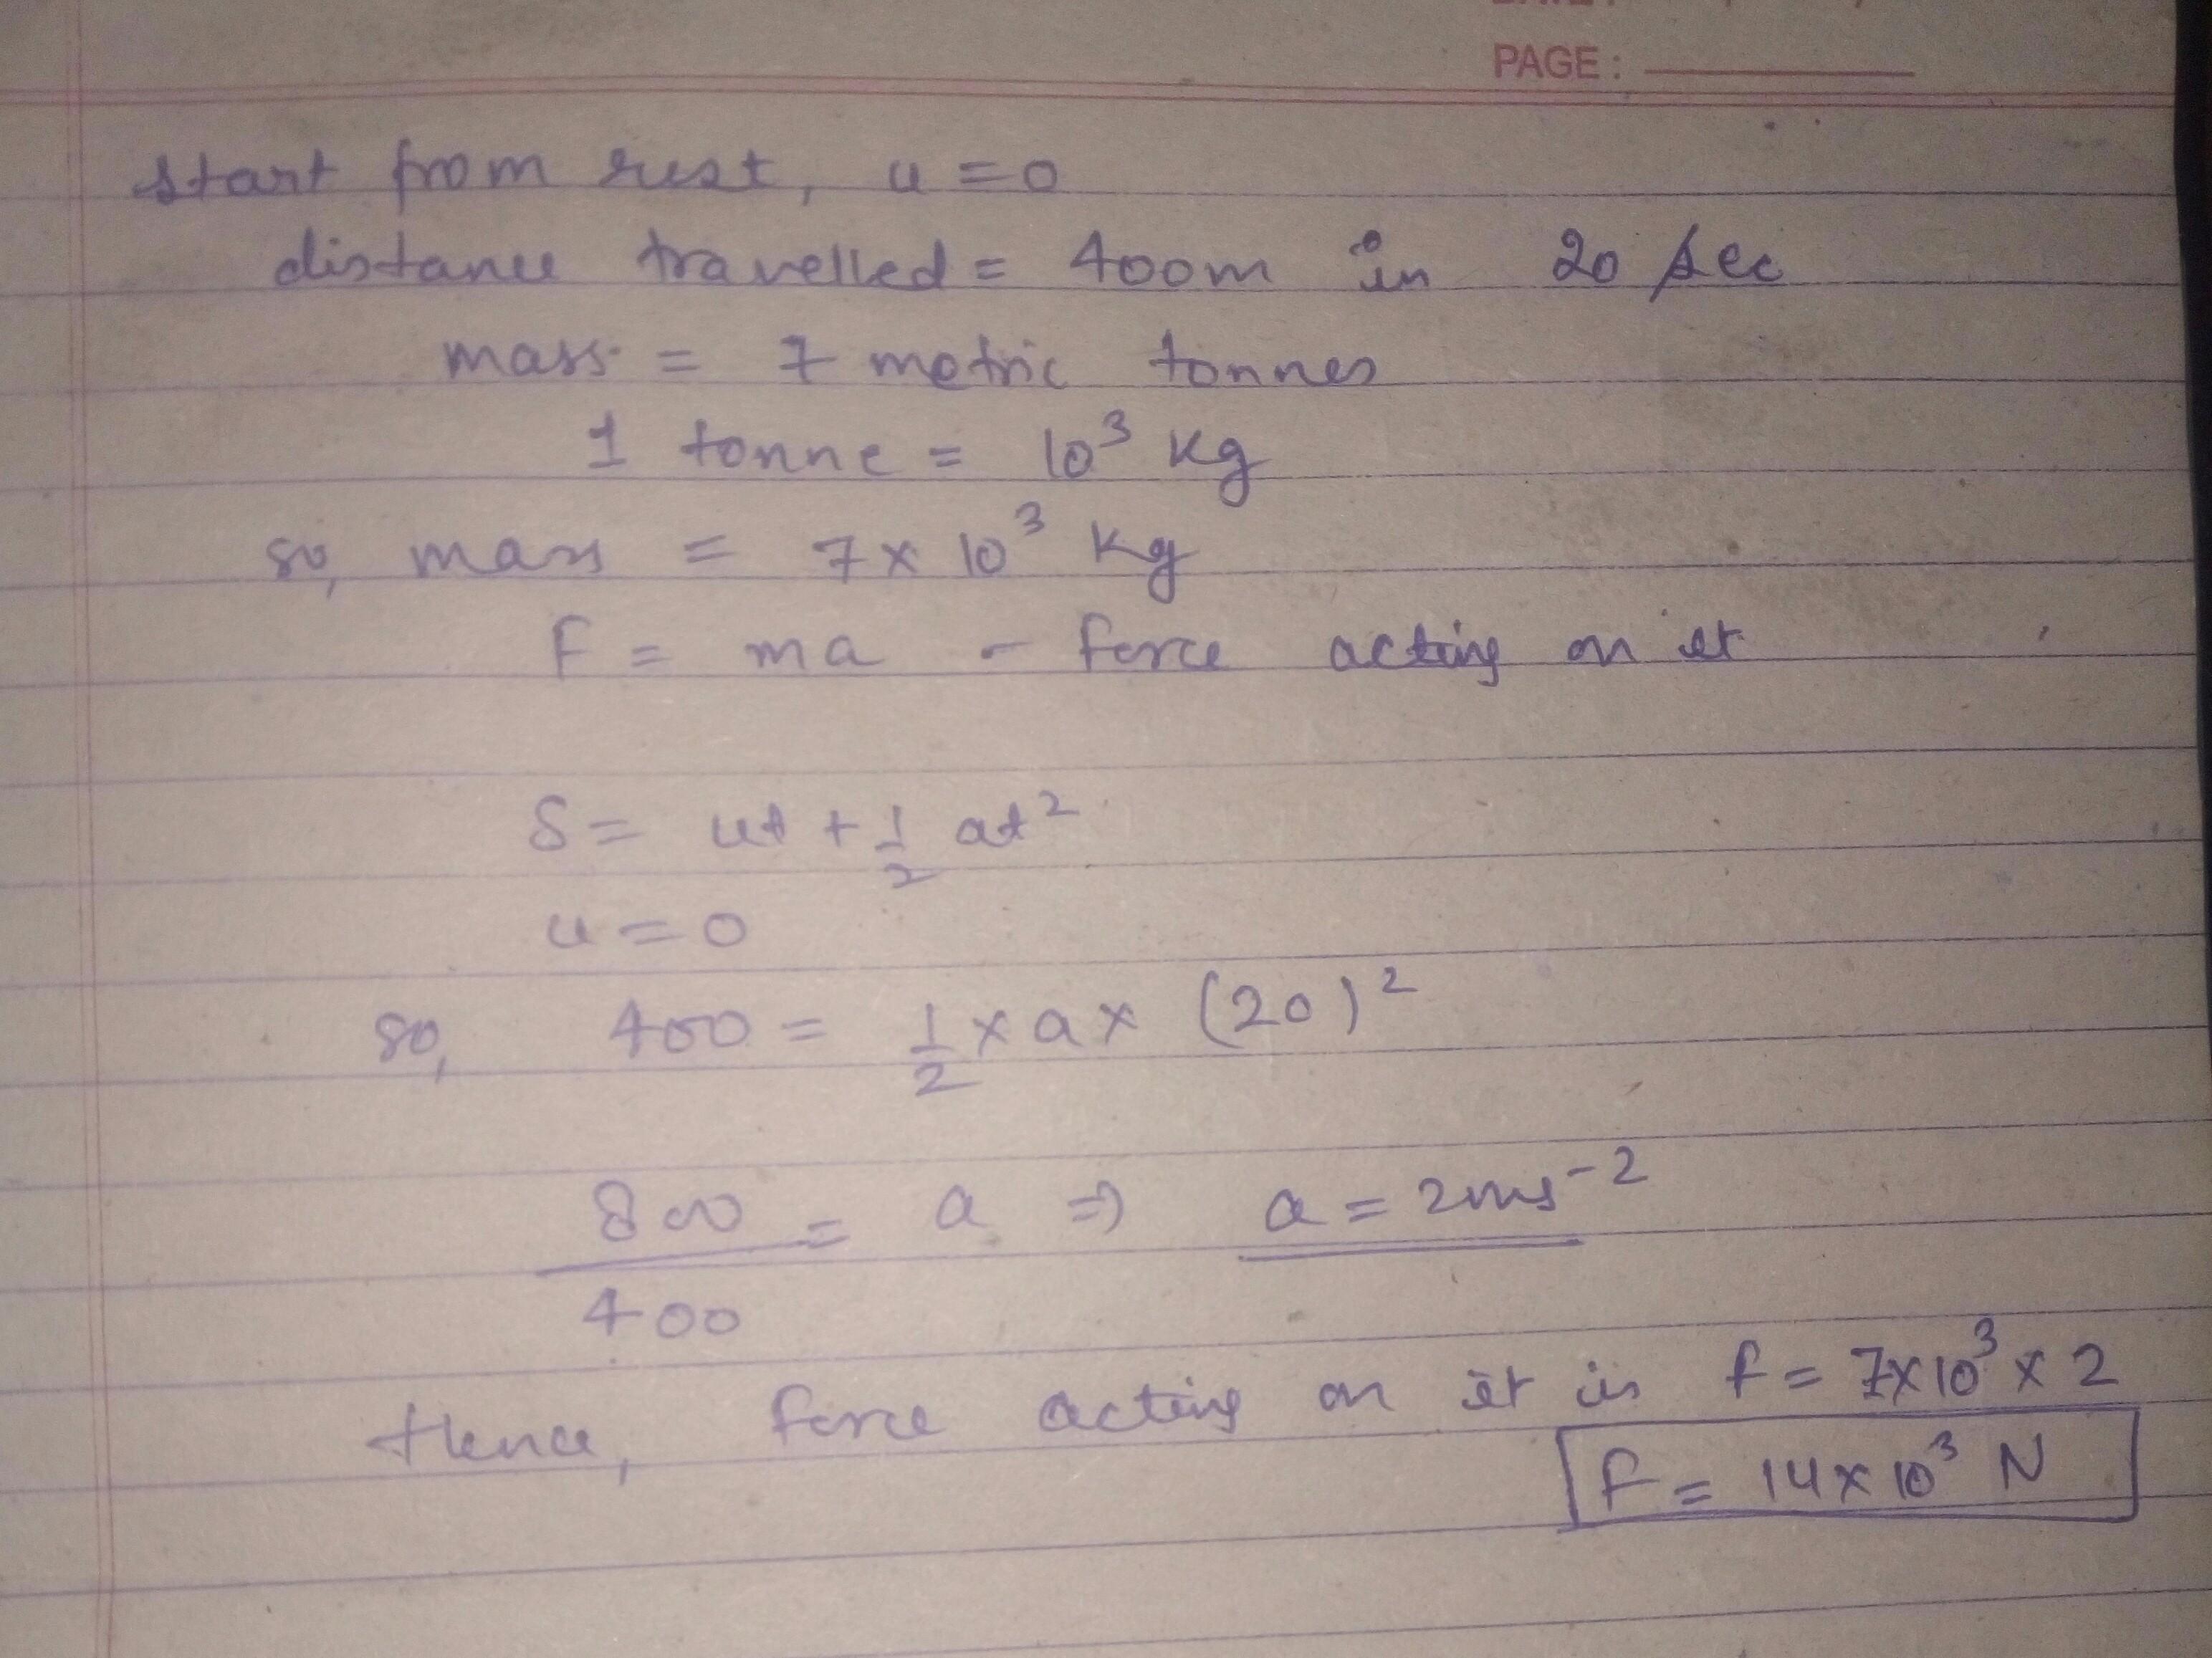 PAGE :
start from rest, u = 0
distance travelled = 400m in 20 sec
mass = 7 metric tonnes
1 tonne = 10³ kg
so, mass = 7 × 10³ kg
F = ma - force acting on it
S = ut + 1/2 at²
u = 0
so, 400 = 1/2 × a × (20)²
800/400 = a ⇒ a = 2ms⁻²
Hence, force acting on it is f = 7×10³ × 2
F = 14 × 10³ N